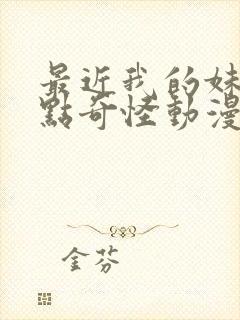 最近我的妹
點奇怪動漫
金芬